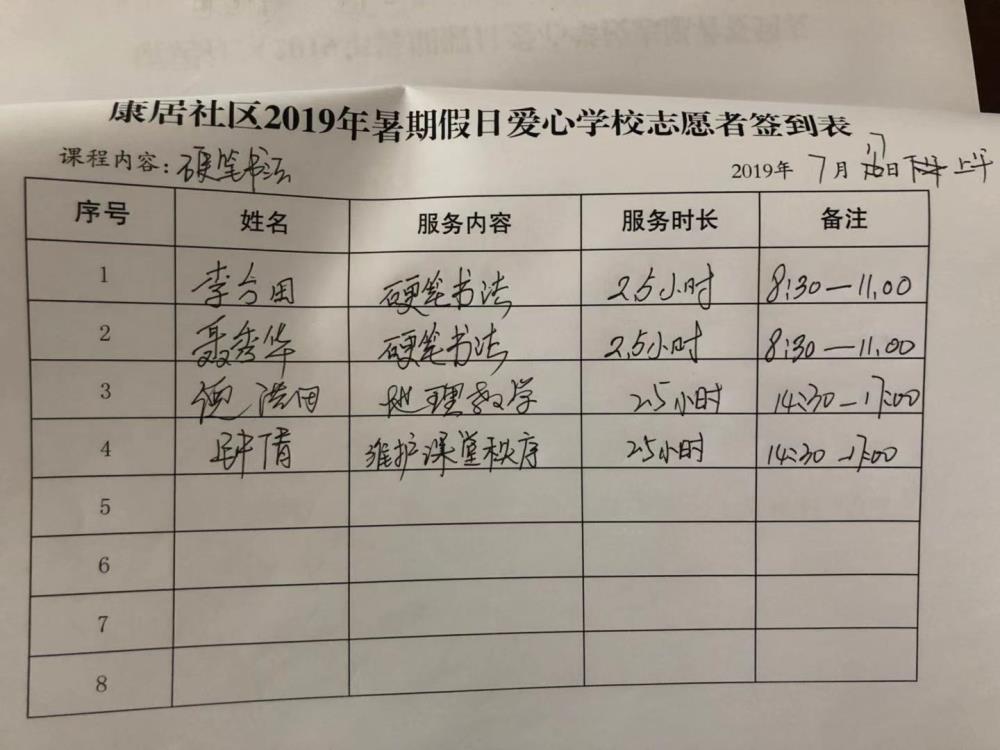 康居社区2019年暑期假日爱心学校志愿者签到表
课程内容:硬笔书法 2019年 7月17日 上午
序号 姓名 服务内容 服务时长 备注
1 李台田 硬笔书法 2.5小时 8:30—11:00
2 聂秀华 硬笔书法 2.5小时 8:30—11:00
3 地理教学 2.5小时 14:30—17:00
4 钟倩 维护课堂秩序 2.5小时 14:30—17:00
5
6
7
8